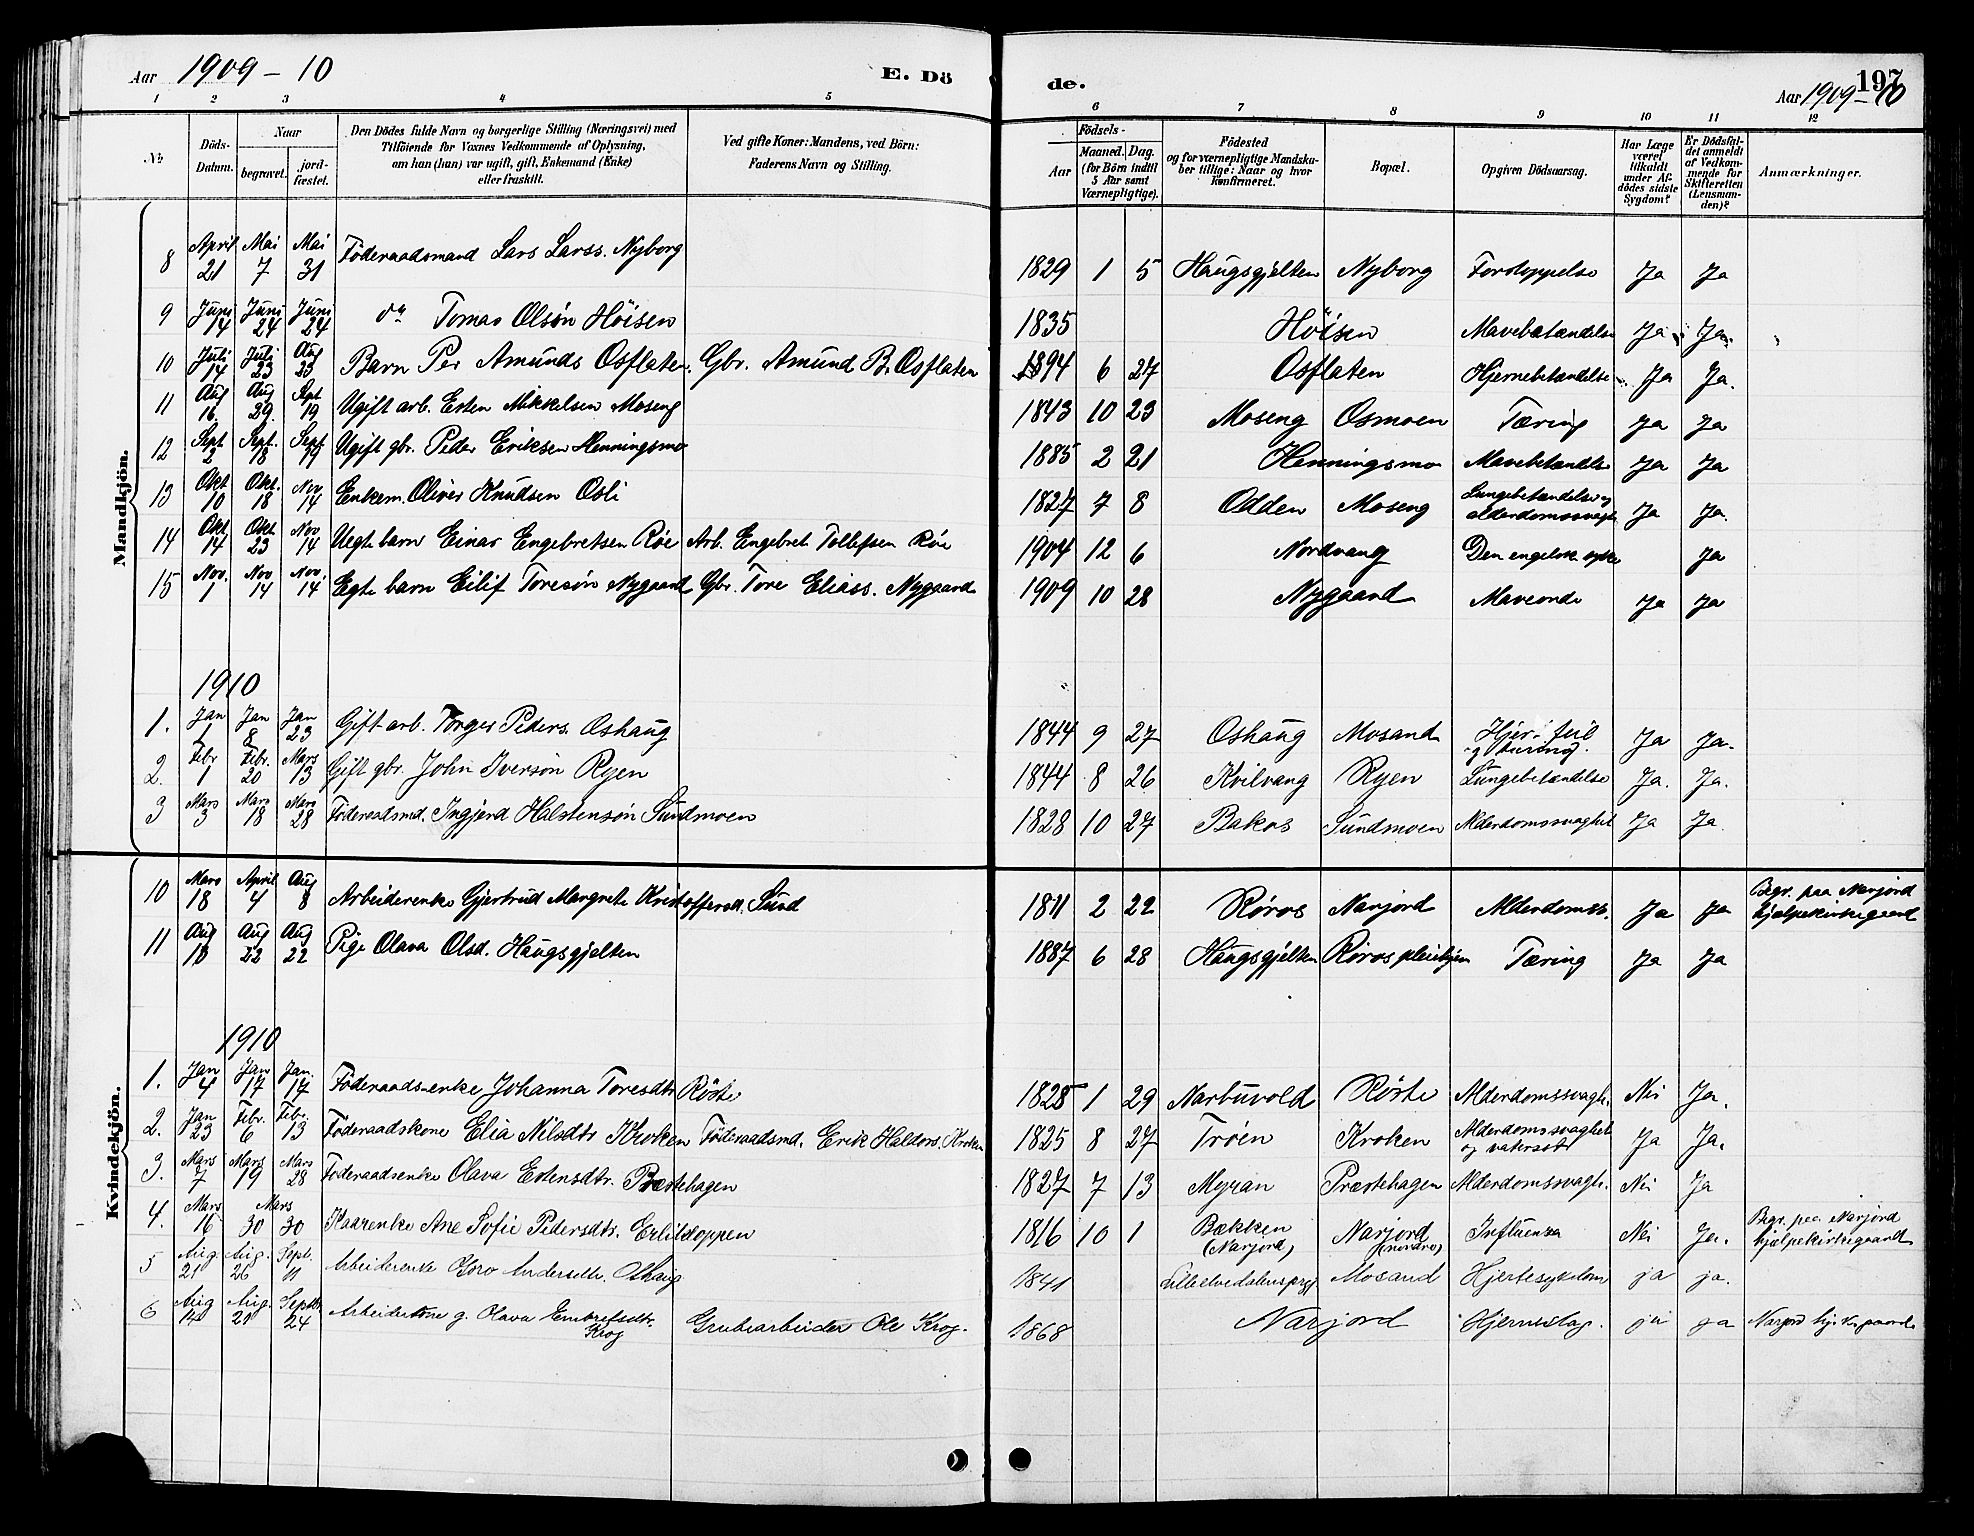 Aar 1909 – 10 E. Dö de. Aar 1909 – 10 197
1 2 3 4 5 6 7 8 9 10 11 12
№ Döds-Datum. Naar begravet. jord-fæstet. Den Dödes fulde Navn og borgerlige Stilling (Næringsvei) med Tilföiende for Voxnes Vedkommende af Oplysning, om han (hun) var ugift, gift, Enkemand (Enke) eller fraskilt. Ved gifte Koner: Mandens, ved Börn: Faderens Navn og Stilling. Födsels- Aar Maaned. Dag. (for Börn indtil 5 Aar samt Værnepligtige). Födested og for værnepligtige Mandskaber tillige: Naar og hvor Konfirmeret. Bopæl. Opgiven Dödsaarsag. Har Læge været tilkaldt under Afdödes sidste Sygdom? Er Dödsfaldet anmeldt af Vedkommende for Skifteretten (Lensmanden)? Anmærkninger.
Mandkjön.
8 April 21 Mai 7 Mai 31 Föderaadsmand Lars Larss. Nyborg 1829 1 5 Haugsgjelten Nyborg Forstoppelse Ja Ja
9 Juni 14 Juni 24 Juni 24 do Tomas Olsön Höisen 1835 Höisen Mavebetændelse Ja Ja
10 Juli 14 Juli 23 Aug 23 Barn Per Amunds Osflaten. Gbr. Amund B. Osflaten 1894 6 27 Osflaten Hjernebetændelse Ja Ja.
11 Aug 16. Aug 29. Sept 19 Ugift arb. Esten Mikkelsen Moseng 1843 10 23 Moseng Osmoen Tæring Ja Ja
12 Sept 2 Sept. 18 Sept 19 Ugift gbr. Peder Eriksen Henningsmo 1885 2 21 Henningsmo Mavebetændelse Ja Ja
13 Okt 10 Okt. 18 Nov 14 Enkem. Oliver Knudsen Osli 1827 7 8 Odden Moseng Lungebetændelse og alderdomssvagh. Ja Ja.
14 Okt 14 Okt 23 Nov 14 Uegte barn Einar Engebretsen Röe Arb. Engebret Tollefsen Röe 1904 12 6 Nordvang Den engelske syke Ja
15 Nov. 1 Nov 14 Nov. 14 Egte barn Eilif Toresön Nygaard Gbr. Tore Eliass. Nygaard 1909 10 28 Nygaard Maveonde Ja Ja
1910
1. Jan 1 Jan 8 Jan 23 Gift arb. Torger Peders. Oshaug 1844 9 27 Oshaug Mosand Hjertefeil og tæring. Ja Ja.
2. Febr 1 Febr. 20 Mars 13 Gift gbr. John Iversön Ryen 1844 8 26 Kvilvang Ryen Lungebetændelse Ja. Ja.
3 Mars 3 Mars 18 Mars 28 Föderaadsmd. Ingjerd Halstensön Sundmoen 1828 10 27 Bakos Sundmoen Alderdomssvaghet Ja Ja.
Kvindekjön.
10 Mars 18 April 4 Aug 8 Arbeiderenke Gjertrud Margrete Kristoffersd. Sund 1811 2 22 Röros Narjord Alderdomss. Ja Ja Begr. paa Narjord hjælpekirkegaard
11 Aug 10 Aug 22 Aug 22 Pige Olava Olsd. Haugsgjelten 1887 6 28 Haugsgjelten Röros pleiehjem Tæring Ja Ja
1910
1. Jan 4 Jan 17 Jan. 17 Föderaadsenke Johanna Toresdtr Röste 1828 1 29 Narbuvold Röste Alderdomssvagh. Nei Ja.
2. Jan 23 Febr. 6 Febr. 13 Föderaadskone Elia Nilsdtr Kroken Föderaadsmd. Erik Haldors. Kroken 1825 8 27 Tröen Kroken Alderdomssvaghet og vatersot Ja Ja.
3. Mars 7 Mars 19 Mars 28 Föderaadsenke Olava Estensdtr. Præstehagen 1827 7 13 Myran Præstehagen Alderdomssvagh. Nei Ja
4. Mars 16 Mars 30 30 Kaarenke Ane Sofie Pedersdtr. Erlitstoppen 1816 10 1 Bækken (Narjord) Narjord (nordre) Influensa Nei Ja. Begr. paa Narjord hjælpekirkegaard
5 Aug. 21 Aug. 26 Sept. 11 Arbeiderenke Goro Andersdtr. Oshaug 1841 Lilleelvedalens prgj Mosand Hjertesykdom ja ja.
6 Aug 14 Aug. 21 Septb. 24 Arbeiderkone g. Olava Embretsdtr. Krog Grubearbeider Ole Krog. 1868 Narjord Hjerneslag. ja ja Narjord hj. k. gaard.